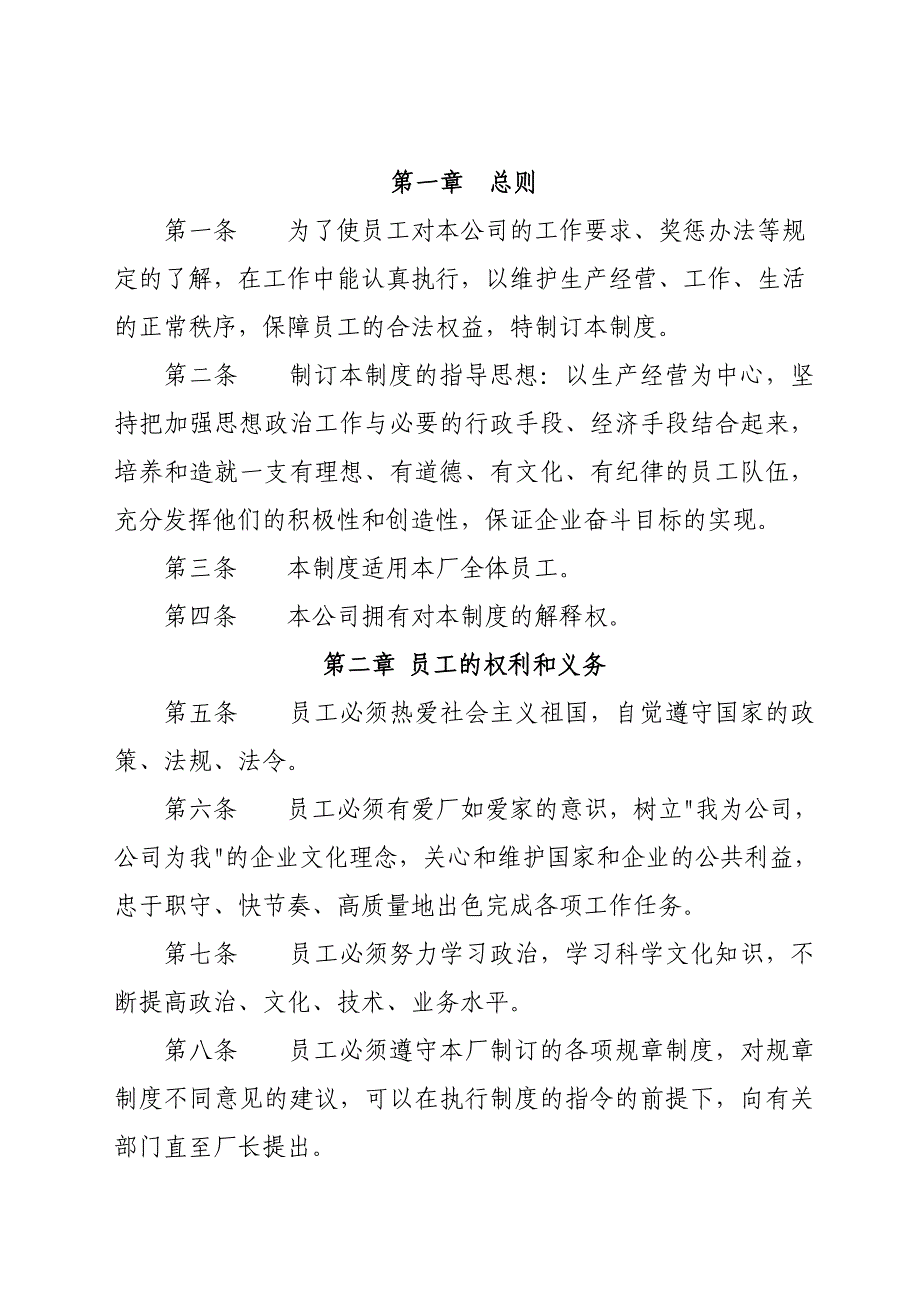 第一章　总则
第一条　　为了使员工对本公司的工作要求、奖惩办法等规
定的了解，在工作中能认真执行，以维护生产经营、工作、生活
的正常秩序，保障员工的合法权益，特制订本制度。
第二条　　制订本制度的指导思想：以生产经营为中心，坚
持把加强思想政治工作与必要的行政手段、经济手段结合起来，
培养和造就一支有理想、有道德、有文化、有纪律的员工队伍，
充分发挥他们的积极性和创造性，保证企业奋斗目标的实现。
第三条　　本制度适用本厂全体员工。
第四条　　本公司拥有对本制度的解释权。
第二章 员工的权利和义务
第五条　　员工必须热爱社会主义祖国，自觉遵守国家的政
策、法规、法令。
第六条　　员工必须有爱厂如爱家的意识，树立"我为公司，
公司为我"的企业文化理念，关心和维护国家和企业的公共利益，
忠于职守、快节奏、高质量地出色完成各项工作任务。
第七条　　员工必须努力学习政治，学习科学文化知识，不
断提高政治、文化、技术、业务水平。
第八条　　员工必须遵守本厂制订的各项规章制度，对规章
制度不同意见的建议，可以在执行制度的指令的前提下，向有关
部门直至厂长提出。